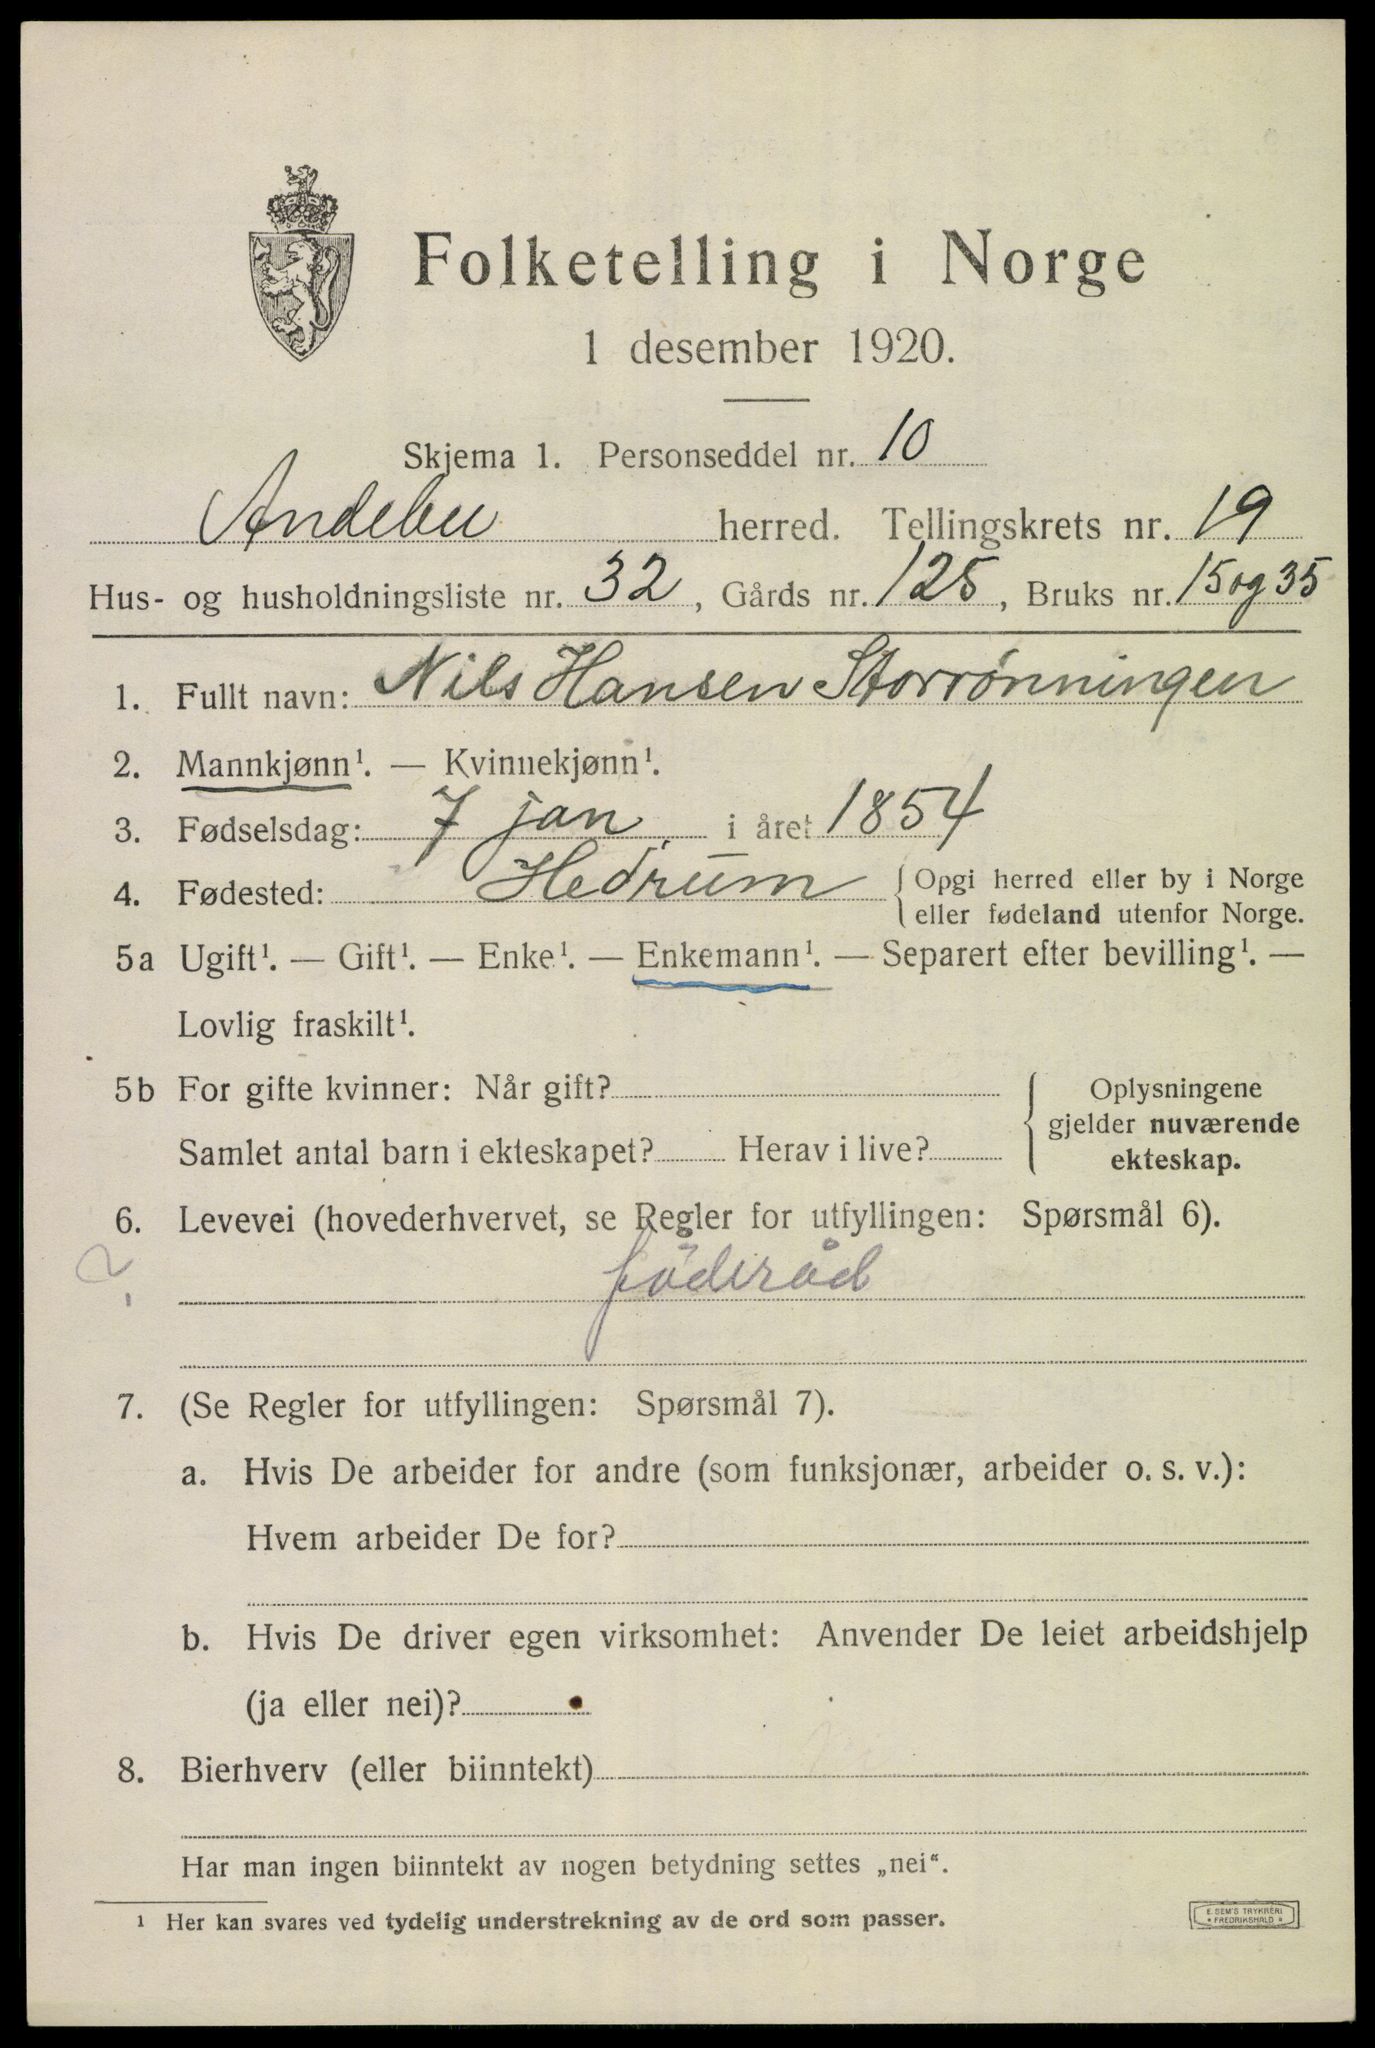 Folketelling i Norge
1 desember 1920.
Skjema 1. Personseddel nr. 10
Andebu herred. Tellingskrets nr. 19
Hus- og husholdningsliste nr. 32, Gårds nr. 125, Bruks nr. 15 og 35
1. Fullt navn: Nils Hansen Storrønningen
2. Mannkjønn¹. — Kvinnekjønn¹.
3. Fødselsdag: 7 jan i året 1854
4. Fødested: Hedrum { Opgi herred eller by i Norge
eller fødeland utenfor Norge.
5a Ugift¹. — Gift¹. — Enke¹. — Enkemann¹. — Separert efter bevilling¹. —
Lovlig fraskilt¹.
5b For gifte kvinner: Når gift?
Samlet antal barn i ekteskapet? Herav i live?
Oplysningene
gjelder nuværende
ekteskap.
6. Levevei (hovederhvervet, se Regler for utfyllingen: Spørsmål 6).
? föderåd
7. (Se Regler for utfyllingen: Spørsmål 7).
a. Hvis De arbeider for andre (som funksjonær, arbeider o. s. v.):
Hvem arbeider De for?
b. Hvis De driver egen virksomhet: Anvender De leiet arbeidshjelp
(ja eller nei)?
8. Bierhverv (eller biinntekt)
Har man ingen biinntekt av nogen betydning settes „nei“.
¹ Her kan svares ved tydelig understrekning av de ord som passer.
E. SEM'S TRYKKERI
* FREDRIKSHALD *